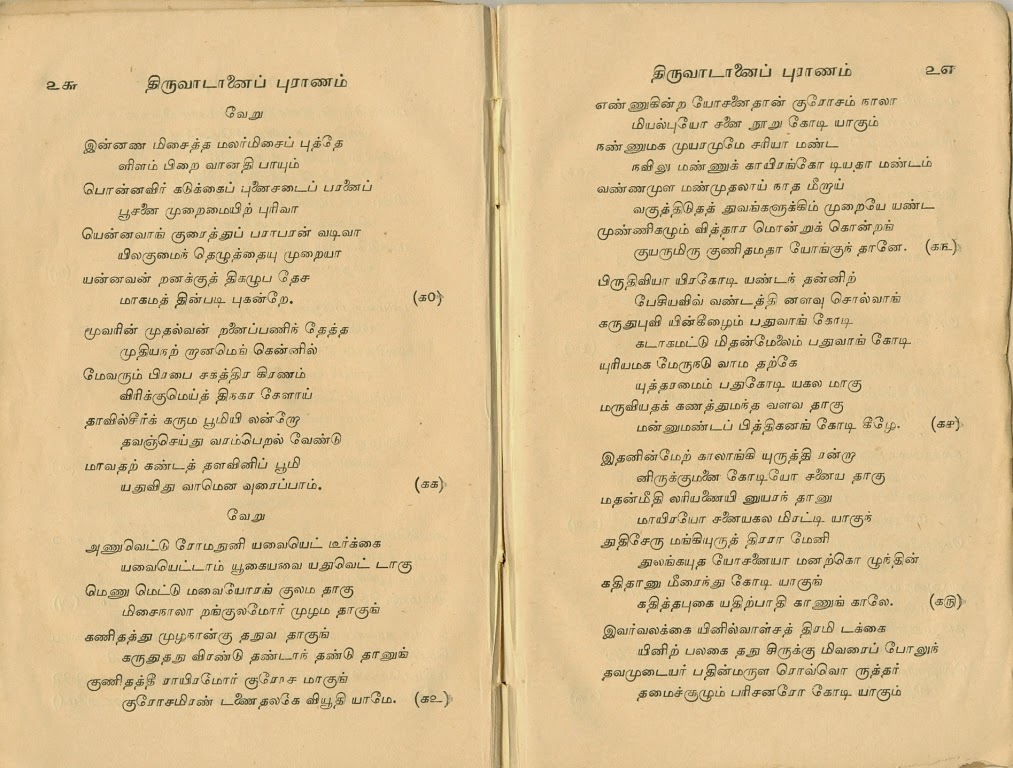 ௨௬
திருவாடானைப் புராணம்
வேறு
இன்னண மிசைத்த மலர்மிசைப் புத்தே
ளிளம் பிறை வானதி பாயும்
பொன்னவிர் கடுக்கைப் புனைசடைப் பரனைப்
பூசனை முறைமையிற் புரிவா
யென்னவாங் குரைத்துப் பராபரன் வடிவா
யிலகுமைந் தெழுத்தையு முறையா
யன்னவன் றனக்குத் திகழுப தேச
மாகமத் தின்படி புகன்றே. (௧0)
மூவரின் முதல்வன் றனைப்பணிந் தேத்த
முதியநற் றானமெங் கென்னில்
மேவரும் பிரபை சகத்திர கிரணம்
விரிக்குமெய்த் திநகர கேளாய்
தாவில்சீர்க் கரும பூமியி லன்றோ
தவஞ்செய்து வரம்பெறல் வேண்டு
மாவதற் கண்டத் தளவினிப் பூமி
யதுவிது வாமென வுரைப்பாம். (௧௧)
வேறு
அணுவெட்டு ரோமநுனி யவையெட் டீர்க்கை
யவையெட்டாம் யூகையவை யதுவெட் டாகு
மெணு மெட்டு மவையோரங் குலம தாகு
மிசைநாலா றங்குலமோர் முழம தாகுங்
கணிதத்து முழநான்கு தநுவ தாகுங்
கருதுதநு விரண்டு தண்டாந் தண்டு தானுங்
குணிதத்தீ ராயிரமோர் குரோச மாகுங்
குரோசமிரண் டணைதலகே வியூதி யாமே. (௧௨)
திருவாடானைப் புராணம்
௨௭
எண்ணுகின்ற யோசனைதான் குரோசம் நாலா
மியல்புயோ சனை நூறு கோடி யாகும்
நண்ணுமக முயரமுமே சரியா மண்ட
நவிலு மண்ணுக் காயிரங்கோ டியதா மண்டம்
வண்ணமுள மண்முதலாய் நாத மீறாய்
வகுத்திடுதத் துவங்களுக்கிம் முறையே யண்ட
முண்ணிகழும் வித்தார மொன்றுக் கொன்றங்
குயருமிரு குணிதமதா யோங்குந் தானே. (௧௩)
பிருதிவியா யிரகோடி யண்டந் தன்னிற்
பேசியவிவ் வண்டத்தி னளவு சொல்வாங்
கருதுபுவி யின்கீழைம் பதுவாங் கோடி
கடாகமட்டு மிதன்மேலைம் பதுவாங் கோடி
யுரியமக மேருநடு வாம தற்கே
யுத்தரமைம் பதுகோடி யகல மாகு
மருவியதக் கணத்துமந்த வளவ தாகு
மன்னுமண்டப் பித்திகனங் கோடி கீழே. (௧௪)
இதனின்மேற் காலாங்கி யுருத்தி ரன்றா
னிருக்குமனை கோடியோ சனைய தாகு
மதன்மீதி லரியணையி னுயரந் தானு
மாயிரயோ சனையகல மிரட்டி யாகுந்
துதிசேரு மங்கியுருத் திரரா மேனி
துலங்கயுத யோசனையா மனற்கொ ழுந்தின்
கதிதானு மீரைந்து கோடி யாகுங்
கதித்தபுகை யதிற்பாதி காணுங் காலே. (௧௫)
இவர்வலக்கை யினில்வாள்சத் திரமி டக்கை
யினிற் பலகை தநு சிருக்கு மிவரைப் போலுந்
தவமுடையர் பதின்மருள ரொவ்வொ ருத்தர்
தமைச்சூழும் பரிசனரோ கோடி யாகும்